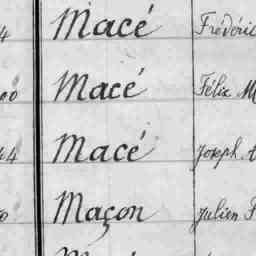 4 Macé Frédéric
00 Macé Félix M
44 Macé Joseph A
Maçon Julien F